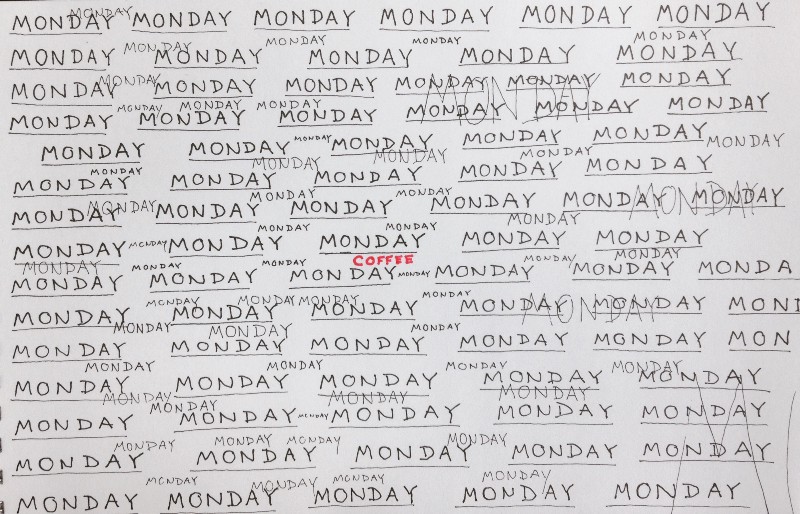 MONDAY MONDAY MONDAY MONDAY MONDAY MONDAY MONDAY
MONDAY MONDAY MONDAY MONDAY MONDAY MONDAY MONDAY MONDAY MONDAY
MONDAY MONDAY MONDAY MONDAY MONDAY MONDAY MONDAY MONDAY
MONDAY MONDAY MONDAY MONDAY MONDAY MONDAY MONDAY MONDAY MONDAY
MONDAY MONDAY MONDAY MONDAY MONDAY MONDAY MONDAY
MONDAY MONDAY MONDAY MONDAY MONDAY MONDAY MONDAY MONDAY MONDAY
MONDAY MONDAY MONDAY MONDAY MONDAY MONDAY MONDAY MONDAY MONDAY MONDAY
MONDAY MONDAY MONDAY MONDAY MONDAY MONDAY MONDAY MONDAY MONDAY
COFFEE
MONDAY MONDAY MONDAY MONDAY MONDAY MONDAY MONDAY MONDAY MONDAY MONDAY MONDA
MONDAY MONDAY MONDAY MONDAY MONDAY MONDAY MONDAY MONDAY MONDAY MONDAY MOND
MONDAY MONDAY MONDAY MONDAY MONDAY MONDAY MONDAY MONDAY MON
MONDAY MONDAY MONDAY MONDAY MONDAY MONDAY MONDAY MONDAY MONDAY
MONDAY MONDAY MONDAY MONDAY MONDAY MONDAY MONDAY MONDAY MONDAY MONDAY
MONDAY MONDAY MONDAY MONDAY MONDAY MONDAY MONDAY MONDAY MONDAY
MONDAY MONDAY MONDAY MONDAY MONDAY MONDAY MONDAY MONDAY MONDAY